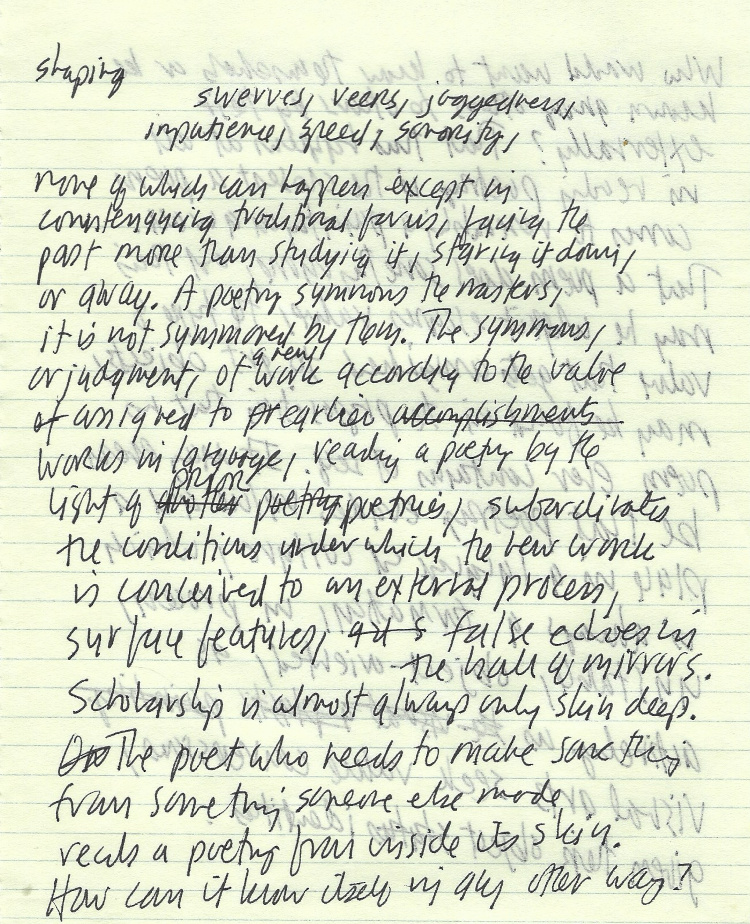 shaping
swerves, veers, jaggedness,
impatience, speed, sonority,
none of which can happen except in
consequencing traditional forms, facing the
past more than studying it, staring it down,
or away. A poetry summons the masters,
it is not summoned by them. The summons,
or judgment, of a new work according to the value
of assigned to prearlier accomplishments
works in language, reading a poetry by the
light of prior poetry poetries, subordinates
the conditions under which the new work
is conceived to an external process,
surface features, false echoes in
the hall of mirrors.
Scholarship is almost always only skin deep.
The poet who needs to make something
from something someone else made
reads a poetry from inside its skin.
How can it know itself in any other way?